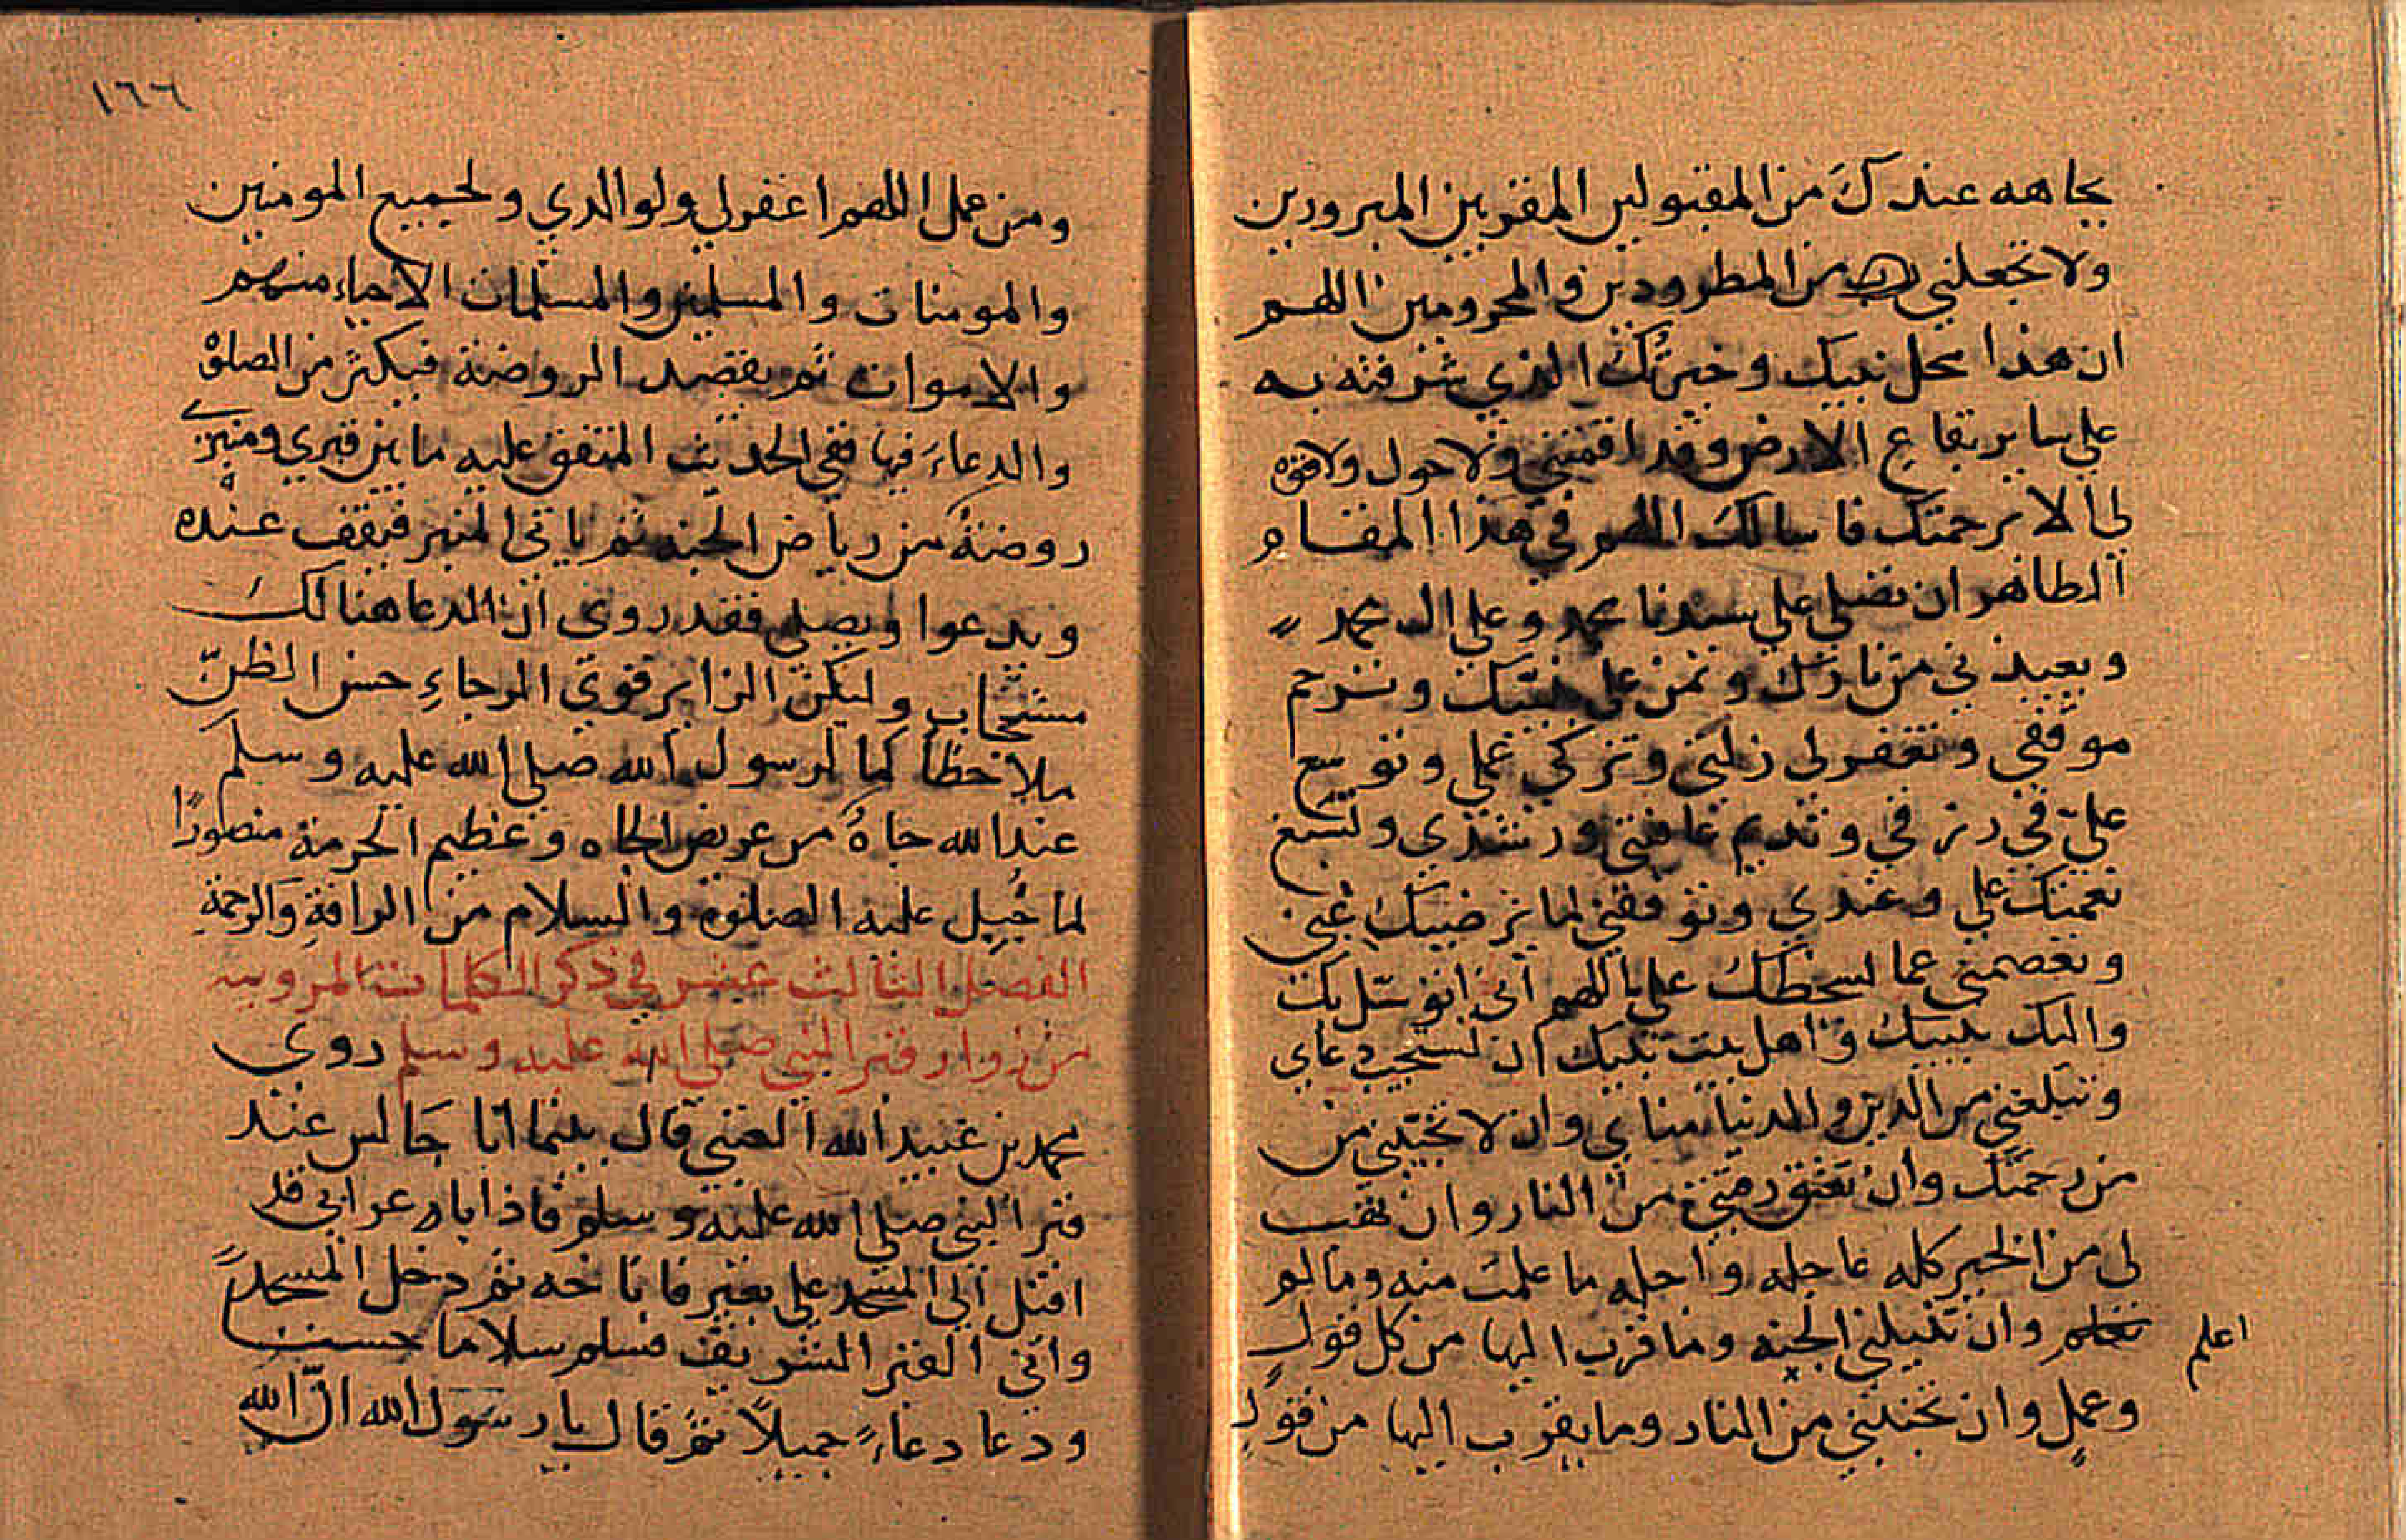 بجاهه عندك من المقبولين المقربين المبرورين
ولا تجعلني من المطرودين والمحرومين اللهم
ان هذا محل نبيك وخيرتك الذي شرفته به
على ساير بقاع الارض وقد اقمتني ولا حول ولا قوة
لي الا برحمتك فاسالك اللهم في هذا المقام
الطاهر ان تصلي على سيدنا محمد وعلى ال محمد
وتعيذني من نارك وتمن على بجنتك وترحم
موقفي وتغفر لي زلتي وتزكي عملي وتوسع
علي في رزقي وتديم عافيتي ورشدي وتسبغ
نعمتك علي وعندي وتوفقني لما يرضيك عني
وتعصمني عما يسخطك علي اللهم اني اتوسل بك
واليك بنبيك واهل بيت نبيك ان تستجيب دعاي
وتبلغني من الدين والدنيا مناي وان لا تخيبني من
من رحمتك وان تعتق رقبتي من النار وان تهب
لي من الخير كله عاجله واجله ما علمت منه وما لم
اعلم
وان تنيلني الجنه وما قرب اليها من كل قول
وعمل وان تجنبني من النار وما يقرب اليها من قول
١٦٦
ومن عمل اللهم اغفر لي ولوالدي ولجميع المومنين
والمومنات والمسلمين والمسلمات الاحياء منهم
والاموات ثم يقصد الروضة فيكثر من الصلوة
والدعاء فيها ففي الحديث المتفق عليه ما بين قبري ومنبري
روضة من رياض الجنه ثم ياتي المنبر فيقف عنده
ويدعوا ويصلي فقد روي ان الدعا هنالك
مستجاب وليكن الزاير قوي الرجاء حسن الظن
ملاحظا لما لرسول الله صلى الله عليه وسلم
عند الله جاه من عريض الجاه وعظيم الحرمة متصورا
لما جبل عليه الصلوة والسلام من الرافة والرحمة
الفصل الثالث عشر في ذكر الكلمات المرويه
من زوار قبر النبي صلى الله عليه وسلم روي
محمد بن عبيد الله العتبي قال بينما انا جالس عند
قبر النبي صلى الله عليه وسلم فاذا باعرابي قد
اقبل الي المسجد على بعير فاناخه ثم دخل المسجد
واتى القبر الشريف فسلم سلاما حسنا
ودعا دعاء جميلا ثم قال يا رسول الله ان الله